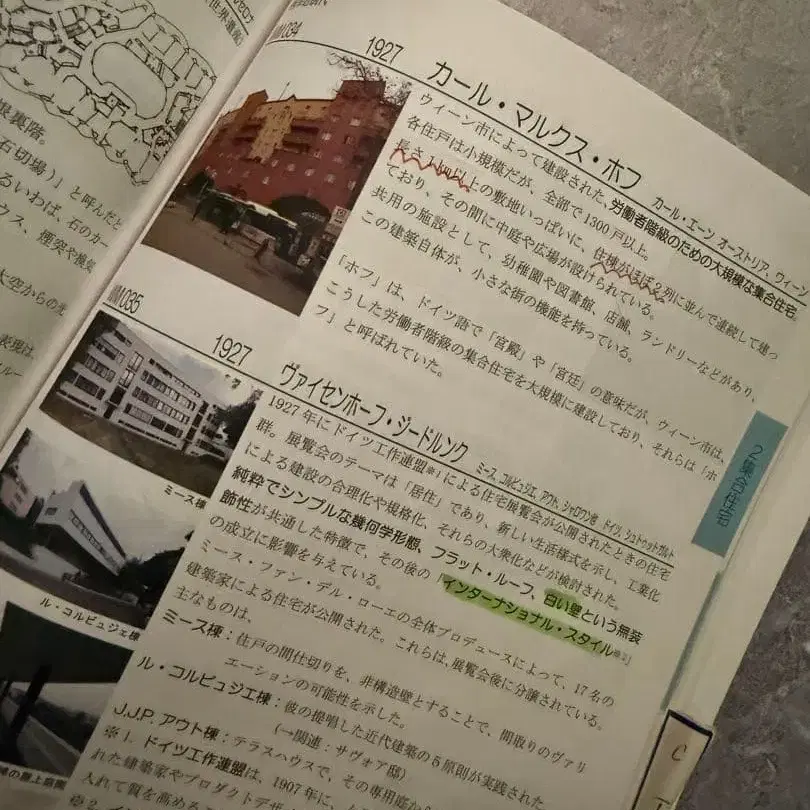 （世界遺産）
根裏階。
石切場）」と呼んだと
るいわば、石のカー
ウス、煙突や換気
大空からの光
表現は、
MM034
1927
カール・マルクス・ホフ カール・エーン オーストリア、ウィーン
ウィーン市によって建設された、労働者階級のための大規模な集合住宅。
各住戸は小規模だが、全部で1300戸以上。
長さ1km以上の敷地いっぱいに、住棟がほぼ2列に並んで連続して建っ
ており、その間に中庭や広場が設けられている。
共用の施設として、幼稚園や図書館、店舗、ランドリーなどがあり、
この建築自体が、小さな街の機能を持っている。
「ホフ」は、ドイツ語で「宮殿」や「宮廷」の意味だが、ウィーン市は、
こうした労働者階級の集合住宅を大規模に建設しており、それらは「ホ
フ」と呼ばれていた。
MM035
1927
ヴァイセンホーフ・ジードルンク ミース、コルビュジエ、アウト、シャロウン他 ドイツ、シュトゥットガルト
1927年にドイツ工作連盟※1による住宅展覧会が公開されたときの住宅
群。展覧会のテーマは「居住」であり、新しい生活様式を示し、工業化
による建設の合理化や規格化、それらの大衆化などが検討された。
純粋でシンプルな幾何学形態、フラット・ルーフ、白い壁という無装
飾性が共通した特徴で、その後の「インターナショナル・スタイル※2」
の成立に影響を与えている。
ミース・ファン・デル・ローエの全体プロデュースによって、17名の
建築家による住宅が公開された。これらは、展覧会後に分譲されている。
主なものは、
ミース棟：住戸の間仕切りを、非構造壁とすることで、間取りのヴァリ
エーションの可能性を示した。
ル・コルビュジエ棟：彼の提唱した近代建築の5原則が実践された
（→関連：サヴォア邸）
J.J.P. アウト棟：テラスハウスで、その専用庭
※1. ドイツ工作連盟は、1907年に、
れた建築家やプロダクトデザ
入れて質を高めるこ
ミース棟
ル・コルビュジエ棟
の屋上庭園
2 集合住宅
C